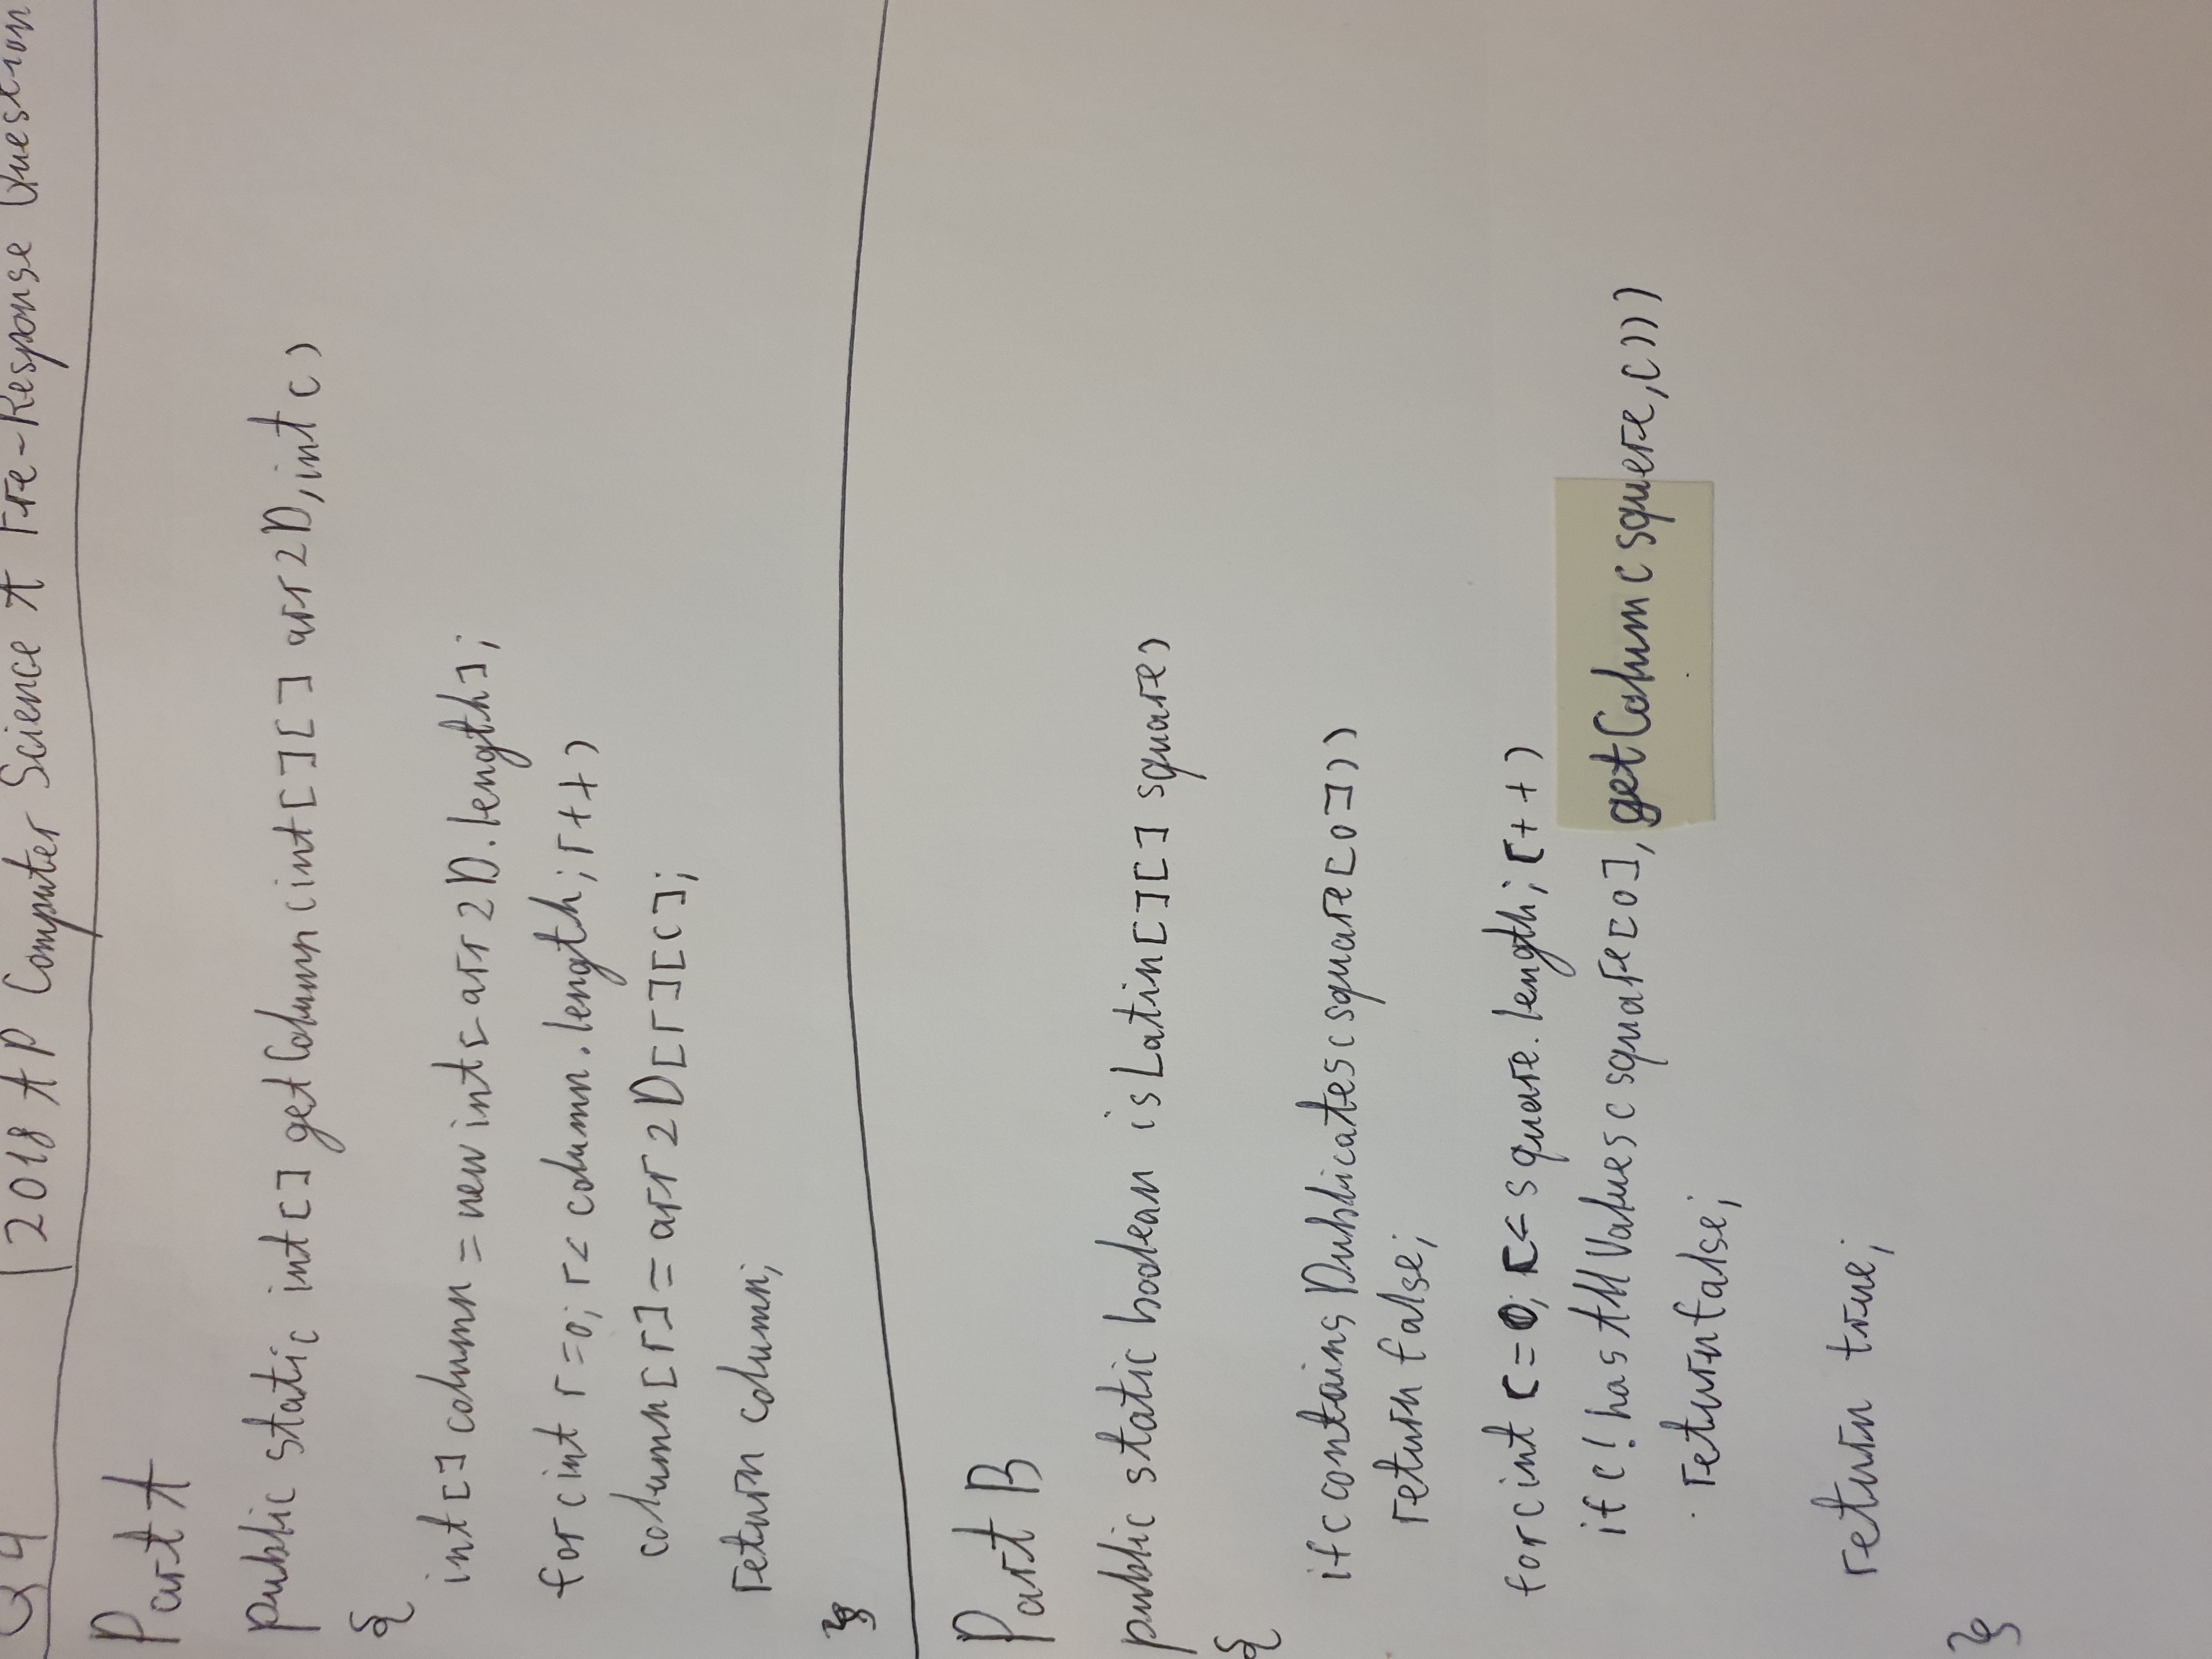 Q4 2018 AP Computer Science A Fre-Response Question
Part A
public static int[] getColumn(int[][] arr2D, int c)
{
int[] column = new int[arr2D.length];
for(int r=0; r< column.length; r++)
column[r] = arr2D[r][c];
return column;
}
Part B
public static boolean isLatin[][] square)
{
if(containsDublicates(square[0]))
return false;
for(int c=0; c< square.length; c++)
if(!hasAllValues(square[0], getColum(squere,c)))
return false;
return true;
}